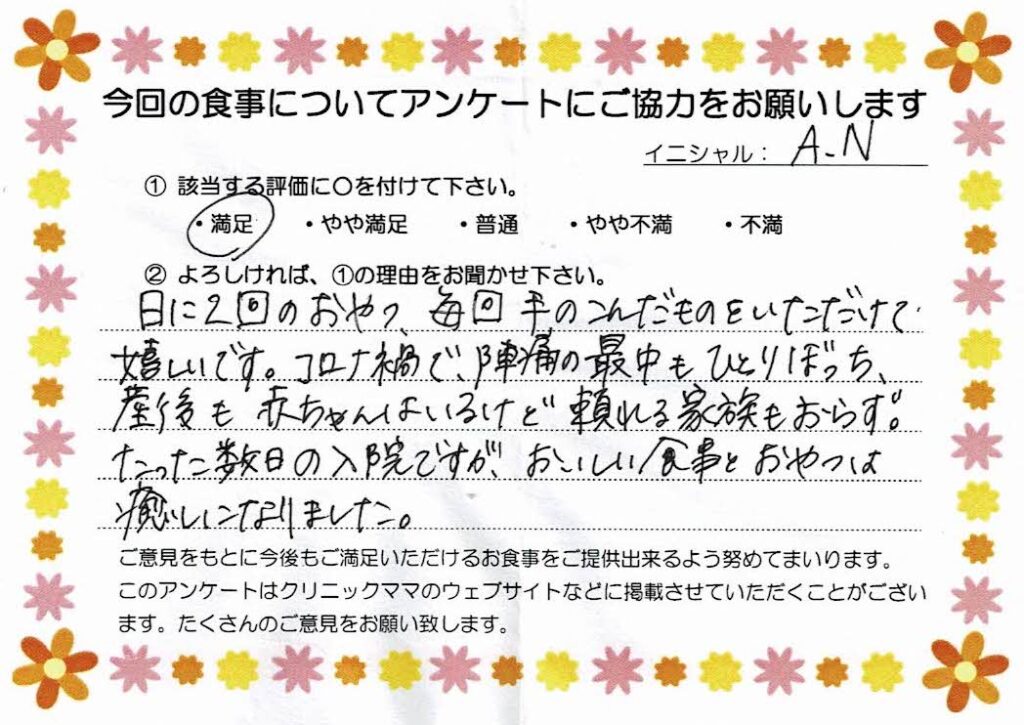 今回の食事についてアンケートにご協力をお願いします
イニシャル： A-N
① 該当する評価に○を付けて下さい。
・満足 ・やや満足 ・普通 ・やや不満 ・不満
② よろしければ、①の理由をお聞かせ下さい。
日に2回のおやつ、毎回手のこんだものをいただけて
嬉しいです。コロナ禍で、陣痛の最中もひとりぼっち、
産後も赤ちゃんはいるけど頼れる家族もおらず。
たった数日の入院ですが、おいしい食事とおやつは
癒しになりました。
ご意見をもとに今後もご満足いただけるお食事をご提供出来るよう努めてまいります。
このアンケートはクリニックママのウェブサイトなどに掲載させていただくことがござい
ます。たくさんのご意見をお願い致します。